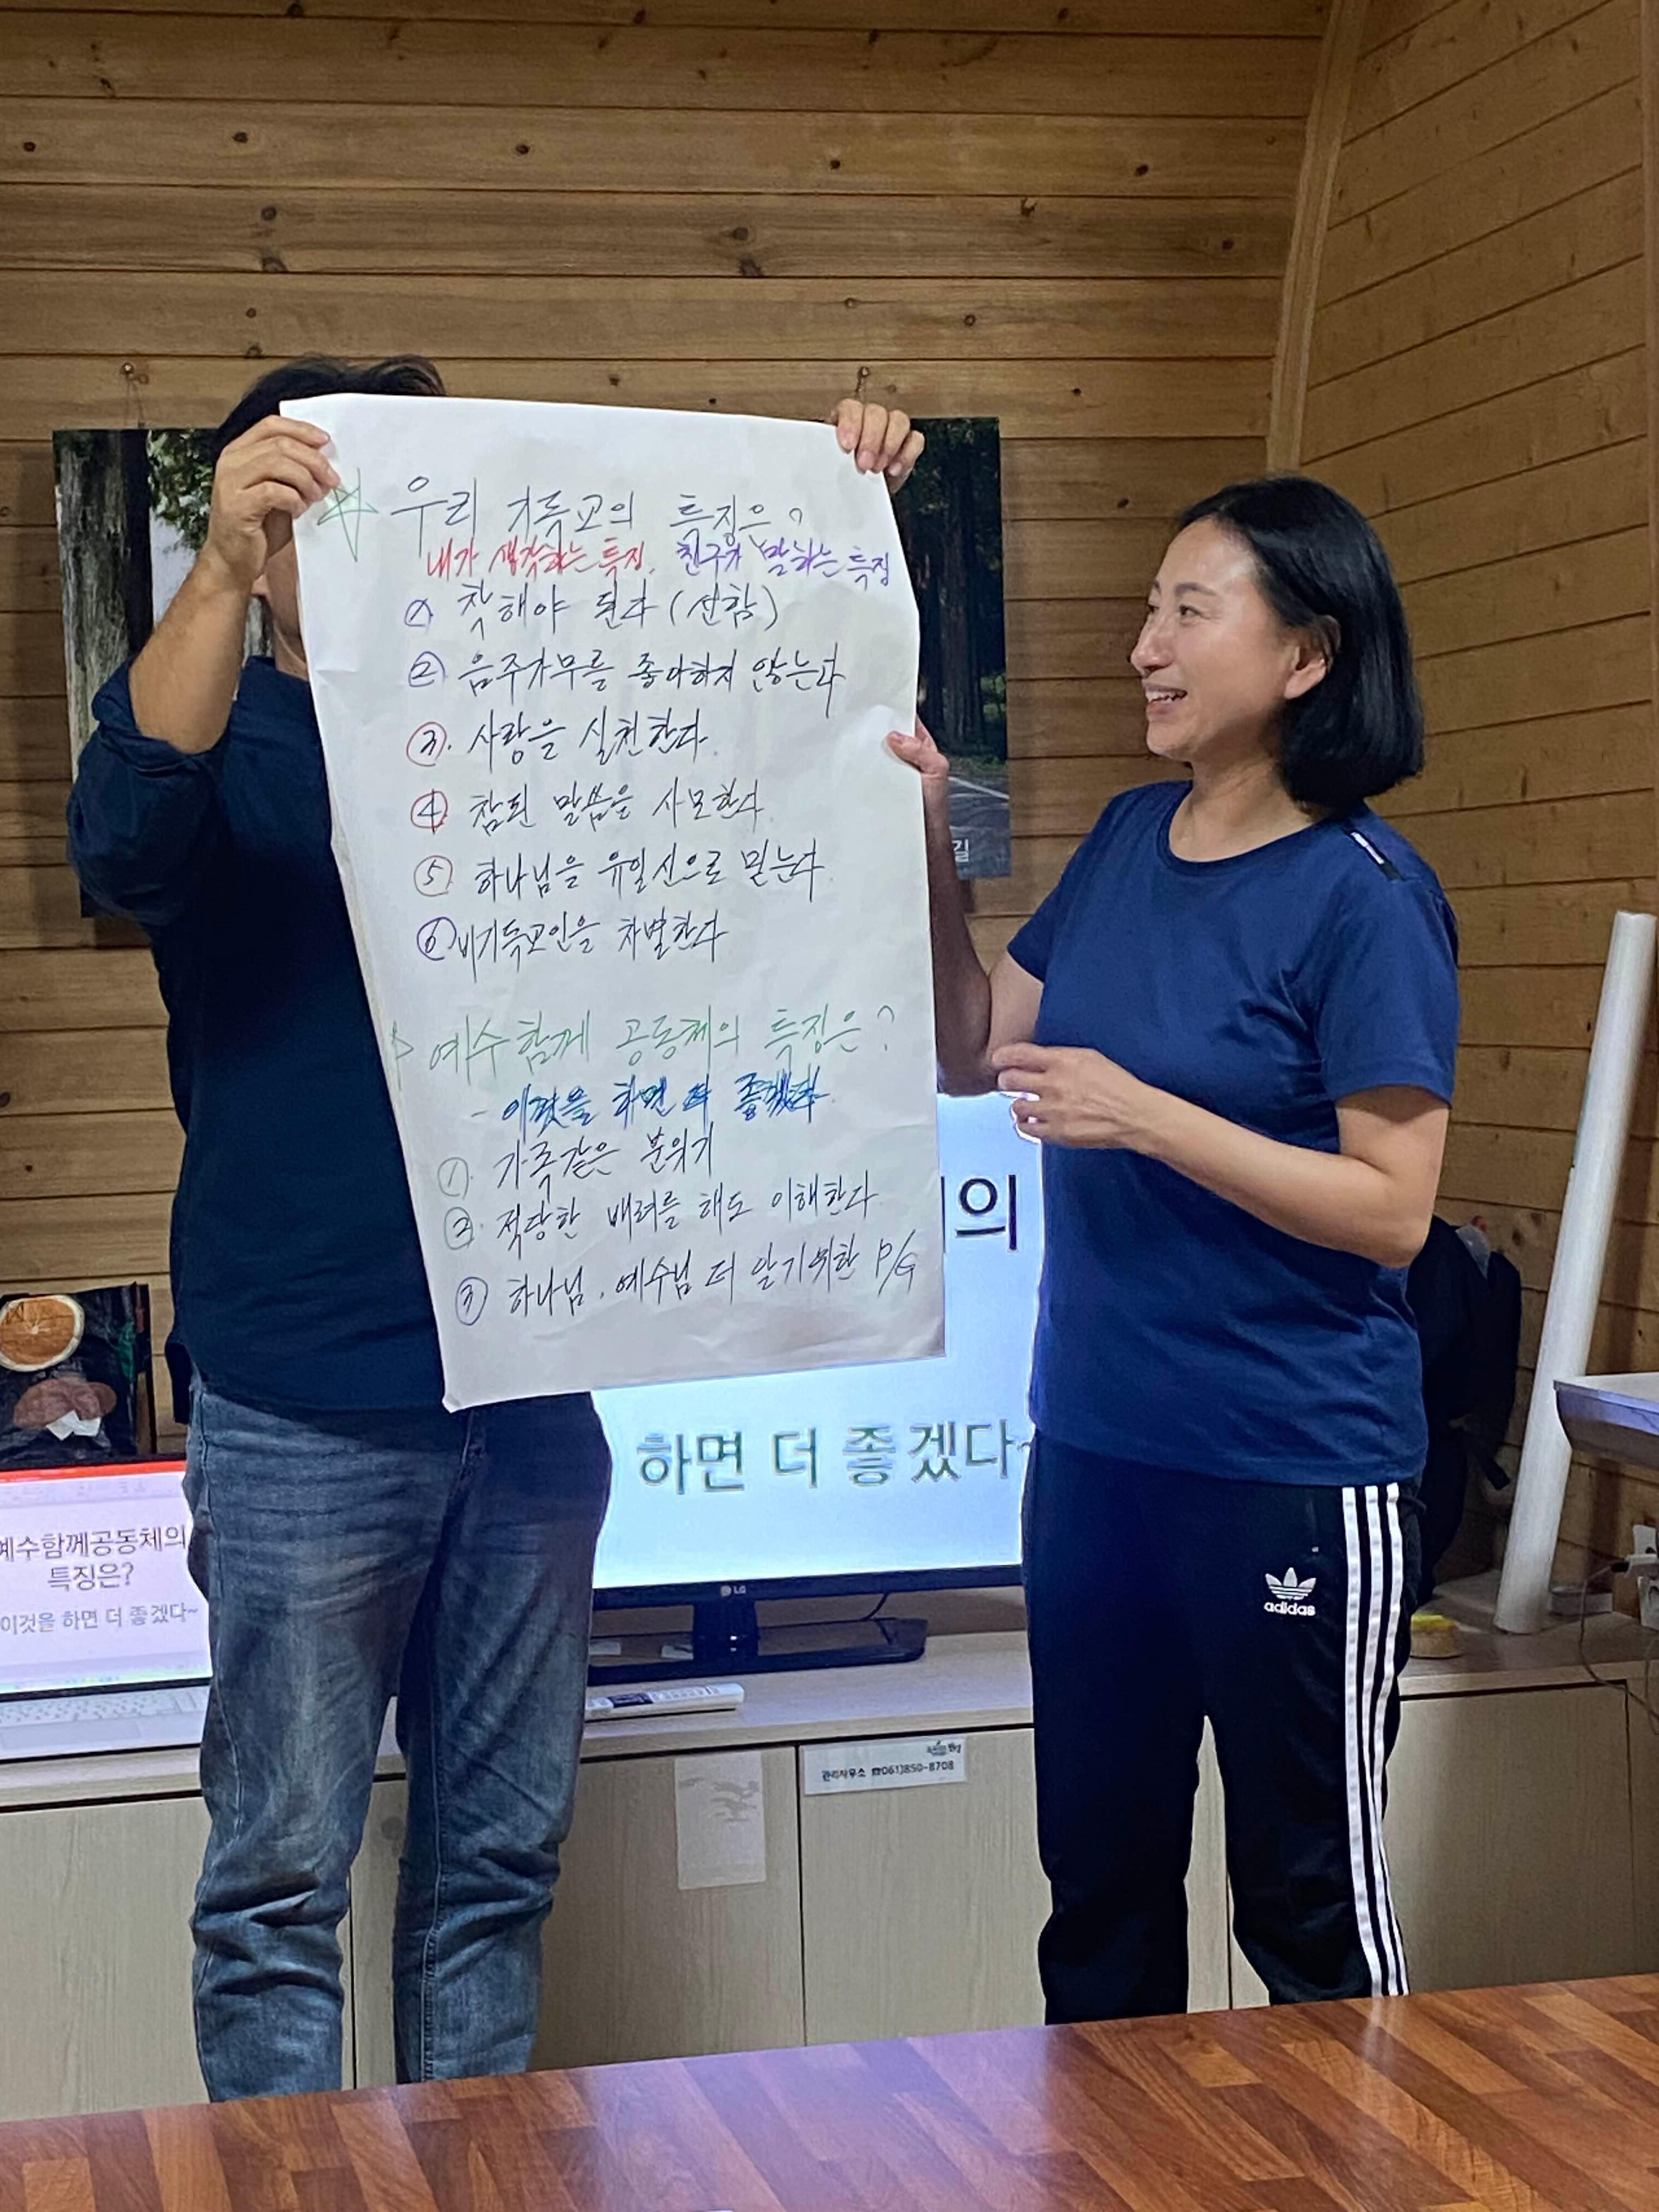 우리 기독교의 특징은?
내가 생각하는 특징, 친구가 말하는 특징
① 착해야 된다 (선함)
② 음주가무를 좋아하지 않는다
③. 사랑을 실천한다.
④ 참된 말씀을 사모한다.
⑤ 하나님을 유일신으로 믿는다.
⑥ 비기독교인을 차별한다
예수함께 공동체의 특징은?
- 이것을 하면 더 좋겠다
①. 가족같은 분위기
②. 적당한 배려를 해도 이해한다.
③ 하나님, 예수님 더 알기위한 P/G
길
의
하면 더 좋겠다~
LG
예수함께공동체의
특징은?
이것을 하면 더 좋겠다~
관리사무소 ☎061)850-8708
adidas